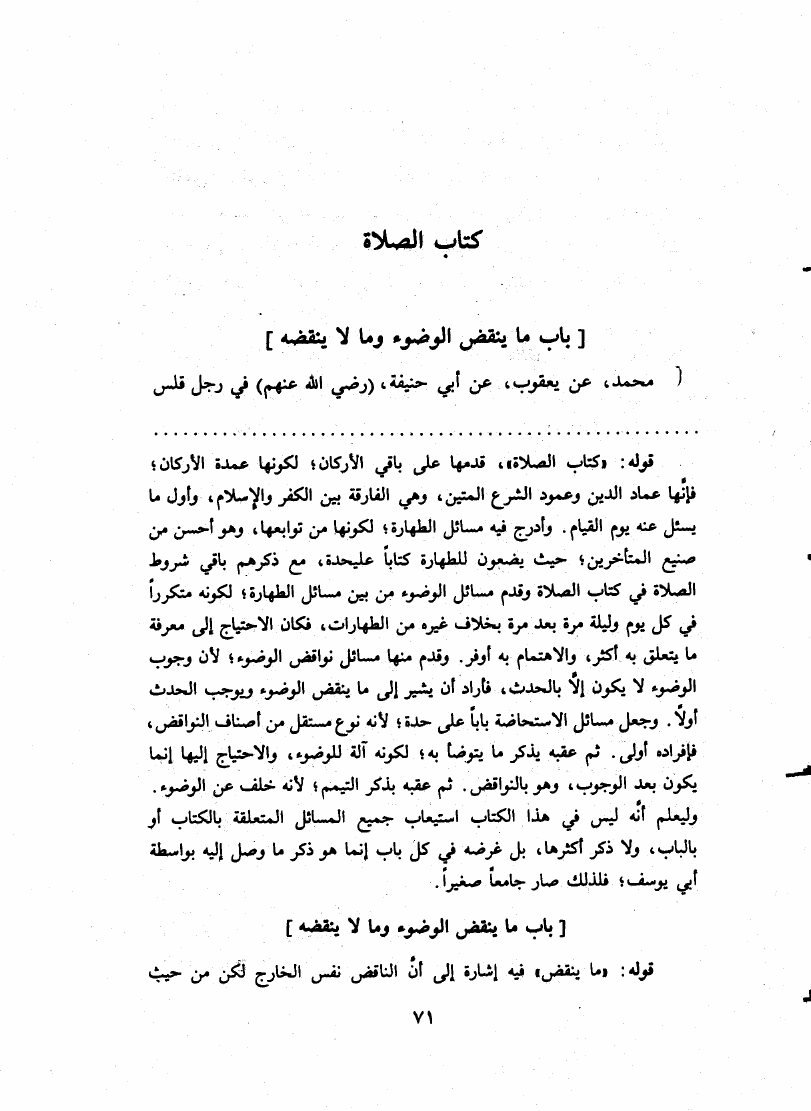 كتاب الصلاة
[ باب ما ينقض الوضوء وما لا ينقضه ]
محمد، عن يعقوب، عن أبي حنيفة، (رضي الله عنهم) في رجل قلس
قوله: «كتاب الصلاة»، قدمها على باقي الأركان؛ لكونها عمدة الأركان؛
فإنَّها عماد الدين وعمود الشرع المتين، وهي الفارقة بين الكفر والإسلام، وأول ما
يسئل عنه يوم القيام. وأدرج فيه مسائل الطهارة؛ لكونها من توابعها، وهو أحسن من
صنيع المتأخرين؛ حيث يضعون للطهارة كتاباً عليحدة، مع ذكرهم باقي شروط
الصلاة في كتاب الصلاة وقدم مسائل الوضوء من بين مسائل الطهارة؛ لكونه متكرراً
في كل يوم وليلة مرة بعد مرة بخلاف غيره من الطهارات، فكان الاحتياج إلى معرفة
ما يتعلق به أكثر، والاهتمام به أوفر. وقدم منها مسائل نواقض الوضوء؛ لأن وجوب
الوضوء لا يكون إلَّا بالحدث، فأراد أن يشير إلى ما ينقض الوضوء ويوجب الحدث
أولاً. وجعل مسائل الاستحاضة باباً على حدة؛ لأنه نوع مستقل من أصناف النواقض،
فإفراده أولى. ثم عقبه بذكر ما يتوضأ به؛ لكونه آلة للوضوء، والاحتياج إليها إنما
يكون بعد الوجوب، وهو بالنواقض. ثم عقبه بذكر التيمم؛ لأنه خلف عن الوضوء.
وليعلم أنَّه ليس في هذا الكتاب استيعاب جميع المسائل المتعلقة بالكتاب أو
بالباب، ولا ذكر أكثرها، بل غرضه في كل باب إنما هو ذكر ما وصل إليه بواسطة
أبي يوسف؛ فلذلك صار جامعاً صغيراً.
[ باب ما ينقض الوضوء وما لا ينقضه ]
قوله: «ما ينقض» فيه إشارة إلى أنَّ الناقض نفس الخارج لكن من حيث
٧١